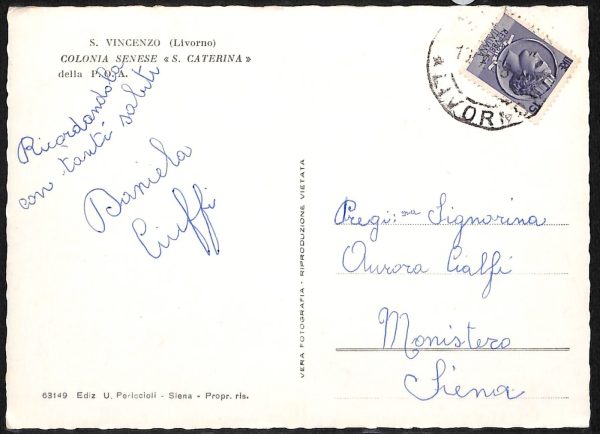 S. VINCENZO (Livorno)
COLONIA SENESE « S. CATERINA »
della P.O.A.
Ricordandola
con tanti saluti
Daniela
Ciuffi
LIVOR
VERA FOTOGRAFIA - RIPRODUZIONE VIETATA
Pregi:ma Signorina
Aurora Cialfi
Monistero
Siena
63149 Ediz U. Periccioli - Siena - Propr. ris.